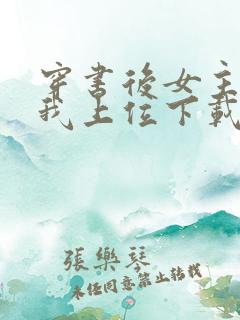 穿书後女主
我上位下載
張樂琴
未经同意禁止转载